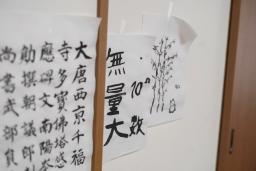 大唐西京千福
寺多寶佛塔感
應碑文南陽岑
勛撰朝議郎判
尚書武部員
無量大数